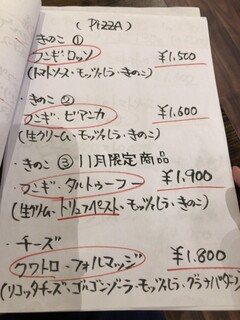 (PIZZA)
・きのこ ①
フンギ・ロッソ ¥1,500
(トマトソース・モッツァレラ・きのこ)
・きのこ ②
フンギ・ビアンカ ¥1,600
(生クリーム・モッツァレラ・きのこ)
・きのこ ③ 11月限定商品
フンギ・タルトゥーフー ¥1,900
(生クリーム・トリュフペースト・モッツァレラ・きのこ)
・チーズ
クワトロ・フォルマッジ ¥1,800
(リコッタチーズ・ゴルゴンゾーラ・モッツァレラ・グラナパダーノ)